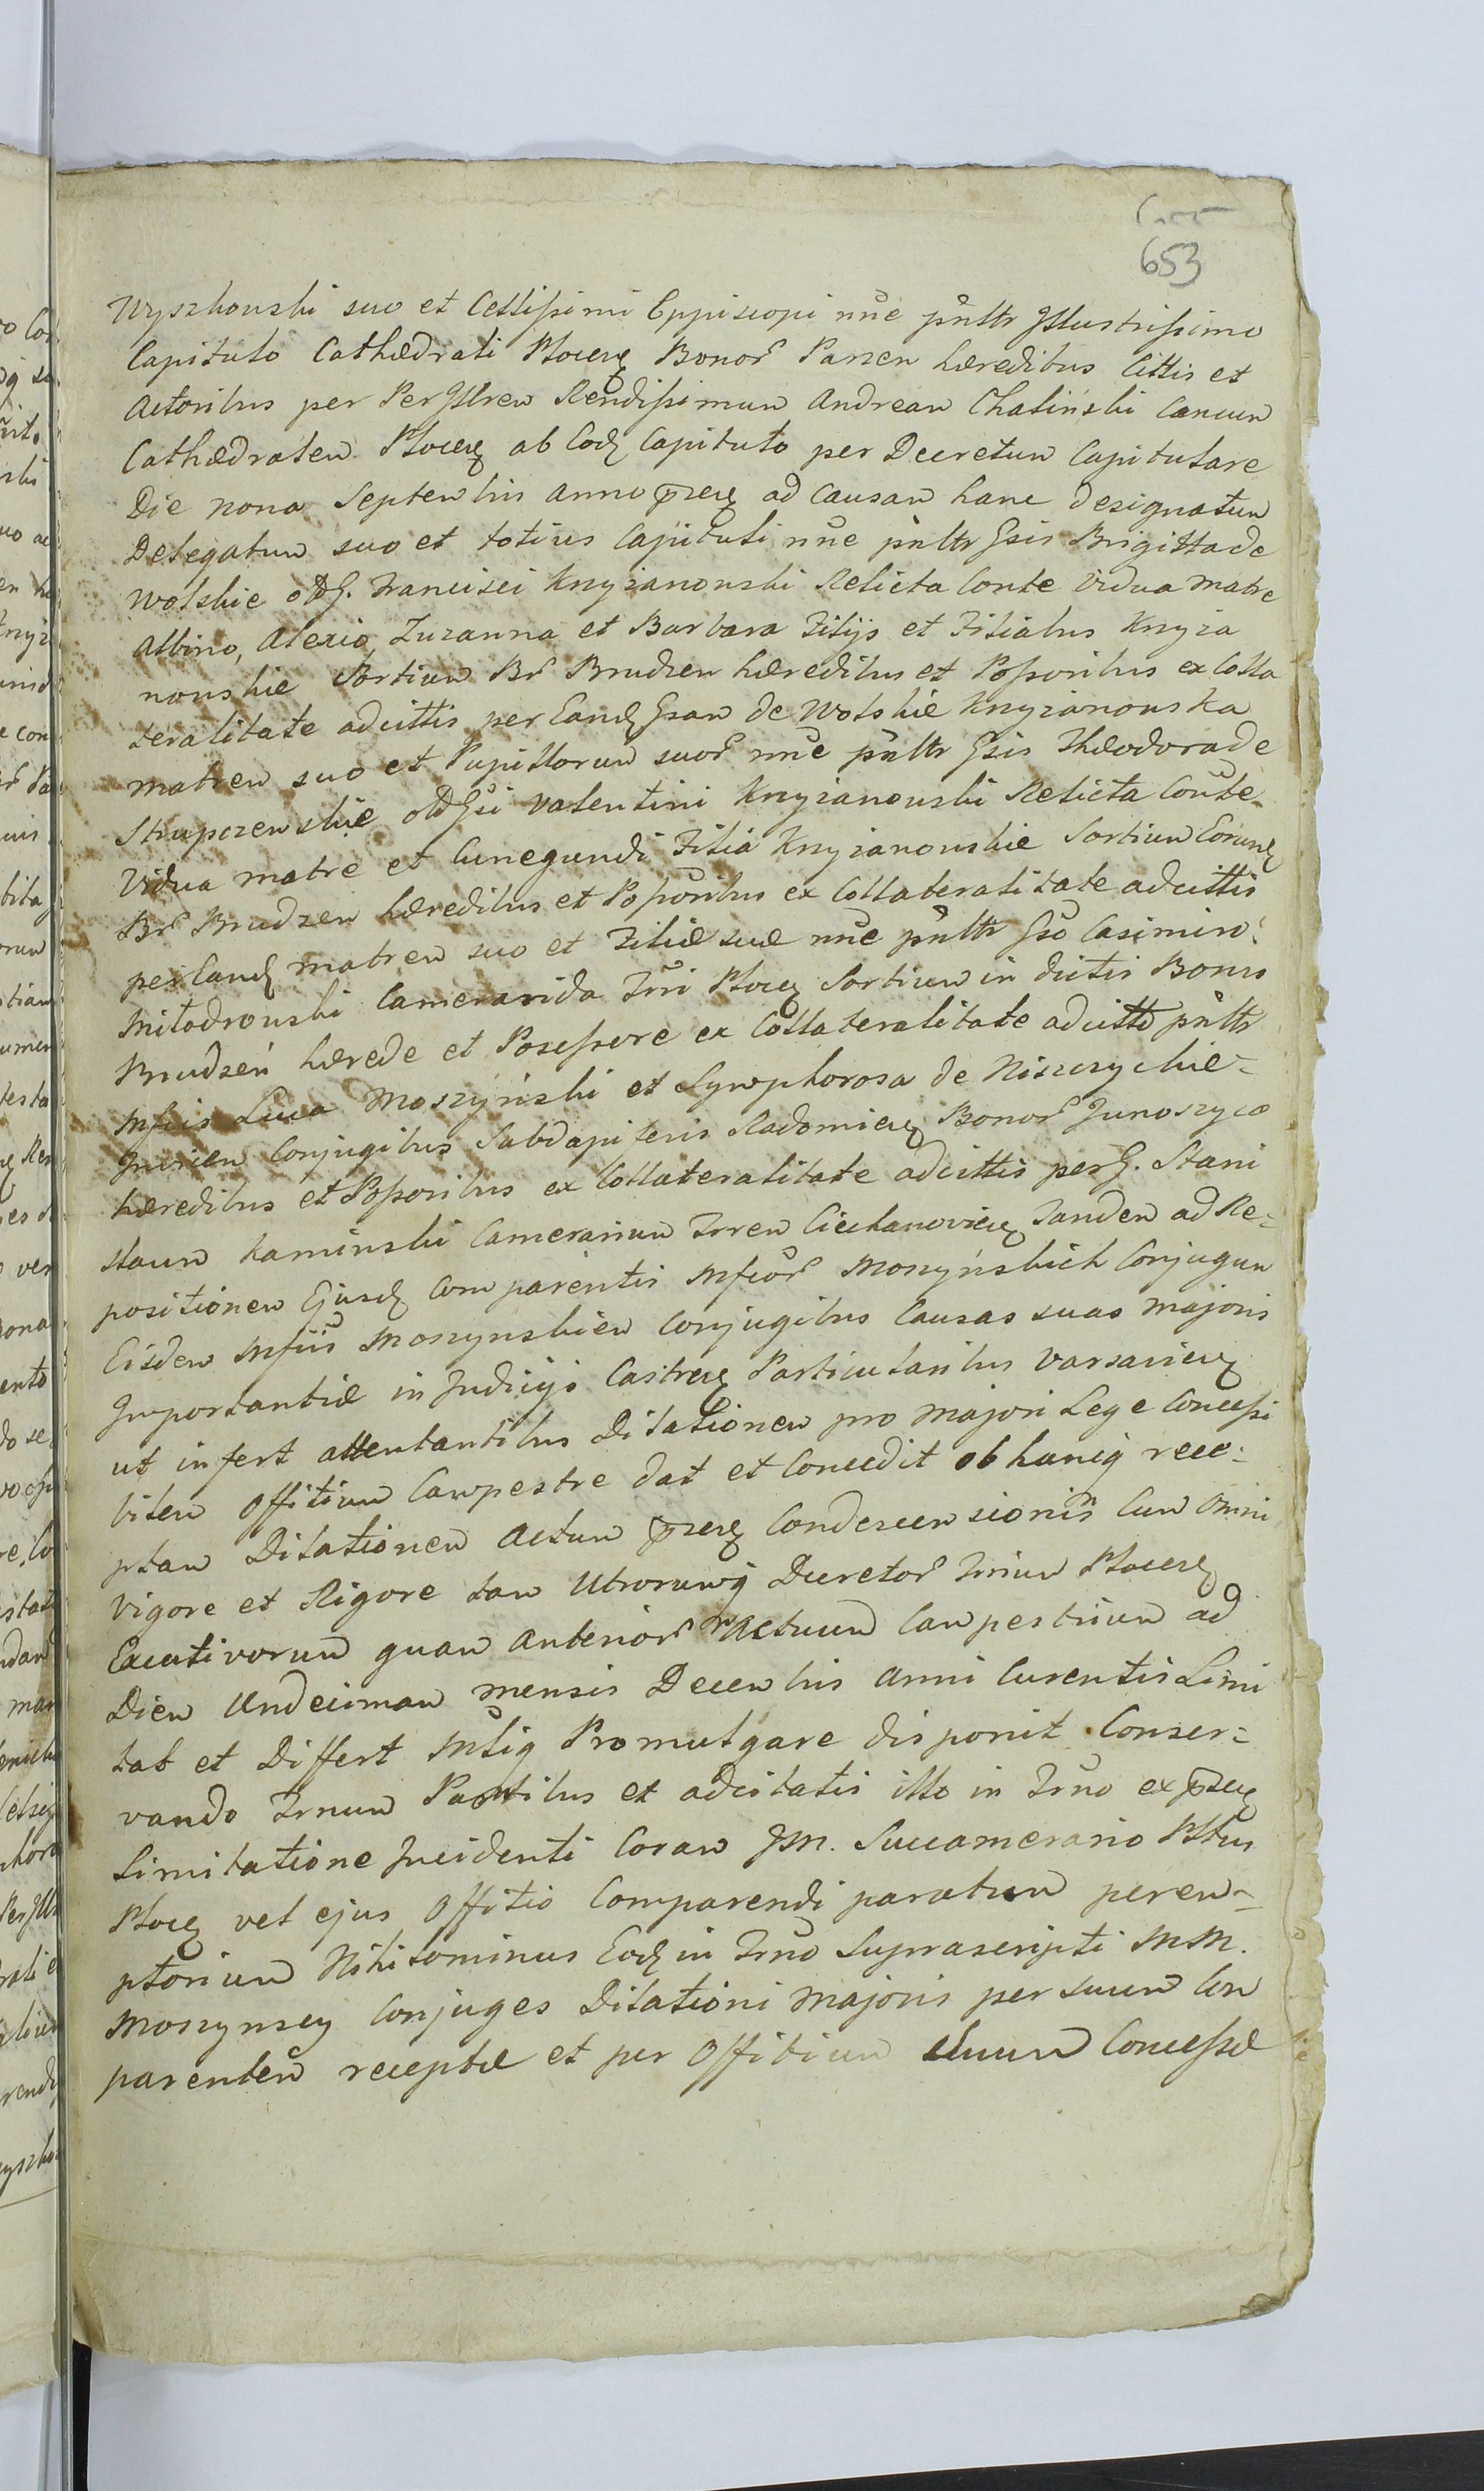 653
Wyszkouski suo et Cellissimi Eppiscopi nne pnttr Jllustrissimo
Capitulo Cathædrali Plocen Bonor Parzen hæredibus Cittis et
Actoribus per PerJllrem Rendissimum Andream Chalinski Canum
Cathædralem Plocen ab Eod Capitulo per Decretum Capitulare
Die nona Septembris anno præn ad Causam hanc designatum
Delegatum suo et totius Capituli nne pnttr Gsis Brigitta de
Wolskie olG. Francisci Knyzanouski Relicta Conte Vidua matre
Albino, Alexio, Zuzanna et Barbara Filijs et Filiabus Knyza
nouskie Sortium Br Brudzen hæredibus et Possoribus ex Colla
teralitate adcittis per Eand Gsam de Wolskie Knyzanouska
matrem suo et Pupillorum suor nne pnttr Gsis Theodora de
Strupczewskie olGsi Valentini Knyzanouski Relicta Conte
Vidua matre et Cunegundi Filia Knyzanouskie Sortium Eorund
Br Brudzen hæredibus et Possoribus ex Collateralitate adcittis
per Eand matrem suo et Filiæ suæ nne pnttr Gso Casimiro
Miłodrouski Camerarida Trri Plocen Sortium in dictis Bonis
Brudzeń hærede et Posessore ex Collateralitate adcitto pnttr
Mfcis Luca Moszyński et Symphorosa de Niszczychie=
Jnrien Conjugibus Subdapiferis Radomien Bonor Junoszyce
hæredibus et Possoribus ex Collateralitate adcittis per G. Stani
slaum Kaminski Camerarium Trrem Ciechanovien Tandem ad Re=
positionem Ejusd Comparentis Mfcor Moszyńskich Conjugum
Eisdem Mfcis Moszynskien Conjugibus Causas suas Majoris
Jmportantiæ in Judicijs Castren Particularibus Varsavien
ut infert attentantibus Dilationem pro Majori Lege Concessi
bilem Offitium Campestre dat et Concedit ob hancq rece=
ptam Dilationem Actum præn Condescensionis Cum Omni
Vigore et Rigore tam Utrorumq Decretor Trnium Plocen
Exeutivorum quam Anterior Actuum Campestrium ad
Diem Undecimam mensis Decembris Anni Curentis Limi
tat et Differt Mlsiq Promulgare disponit Conser=
vando Trnum Partibus et adcitatis illo in Trno ex præn
Limitatione Jncidenti Coram JM. Succamerario Pltus
Plocen vel ejus Offitio Comparendi paratum perem=
ptorium Nihilominus Eod in Trno Suprascripti MM.
Moszynscy Conjuges Dilationi Majoris per Suum Con
parentem receptæ et per Offitium Suum Concessæ